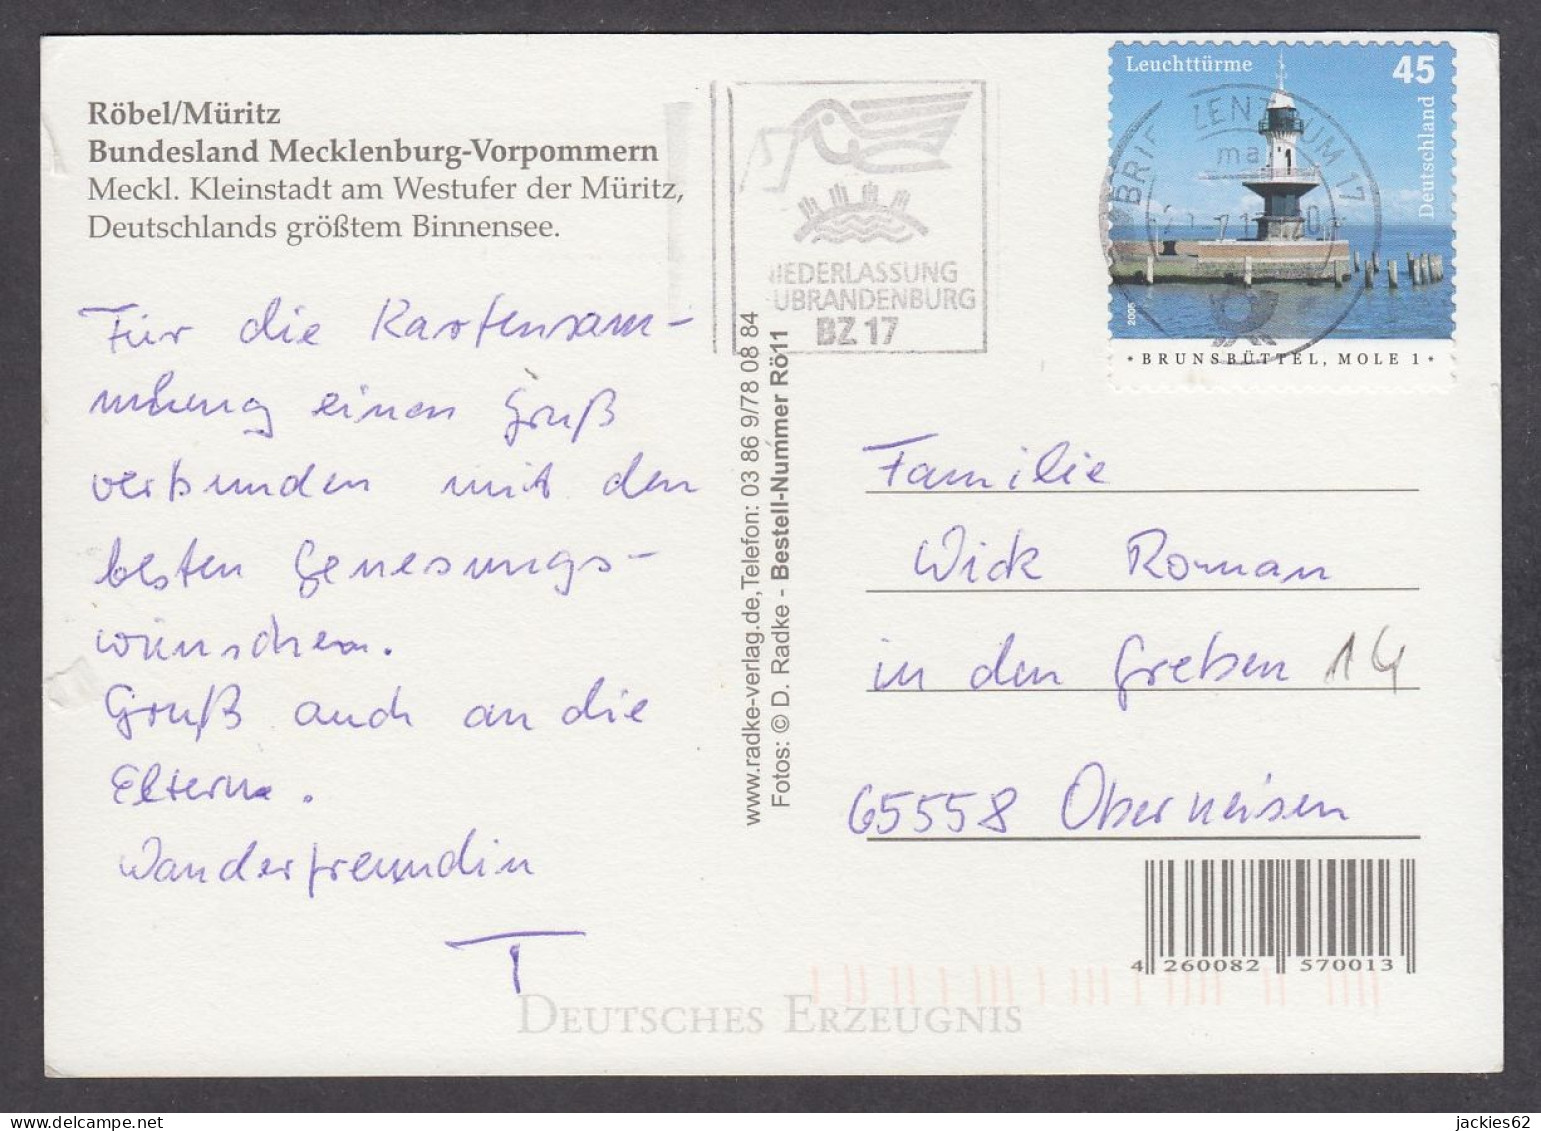 Röbel/Müritz
Bundesland Mecklenburg-Vorpommern
Meckl. Kleinstadt am Westufer der Müritz,
Deutschlands größtem Binnensee.
Für die Kartensam-
mlung einen Gruß
verbunden mit den
besten Genesungs-
wünschen.
Gruß auch an die
Eltern.
Wanderfreundin
T
www.radke-verlag.de, Telefon: 03 86 9/78 08 84
Fotos: © D. Radke - Bestell-Nummer Rö11
IEDERLASSUNG
UBRANDENBURG
BZ 17
Leuchttürme
45
Deutschland
2005
• BRUNSBÜTTEL, MOLE 1 •
BRIEFZENTRUM 17
ma
Familie
Wick Roman
in den Greben 14
65558 Oberneisen
4 260082 570013
DEUTSCHES ERZEUGNIS
jackies62